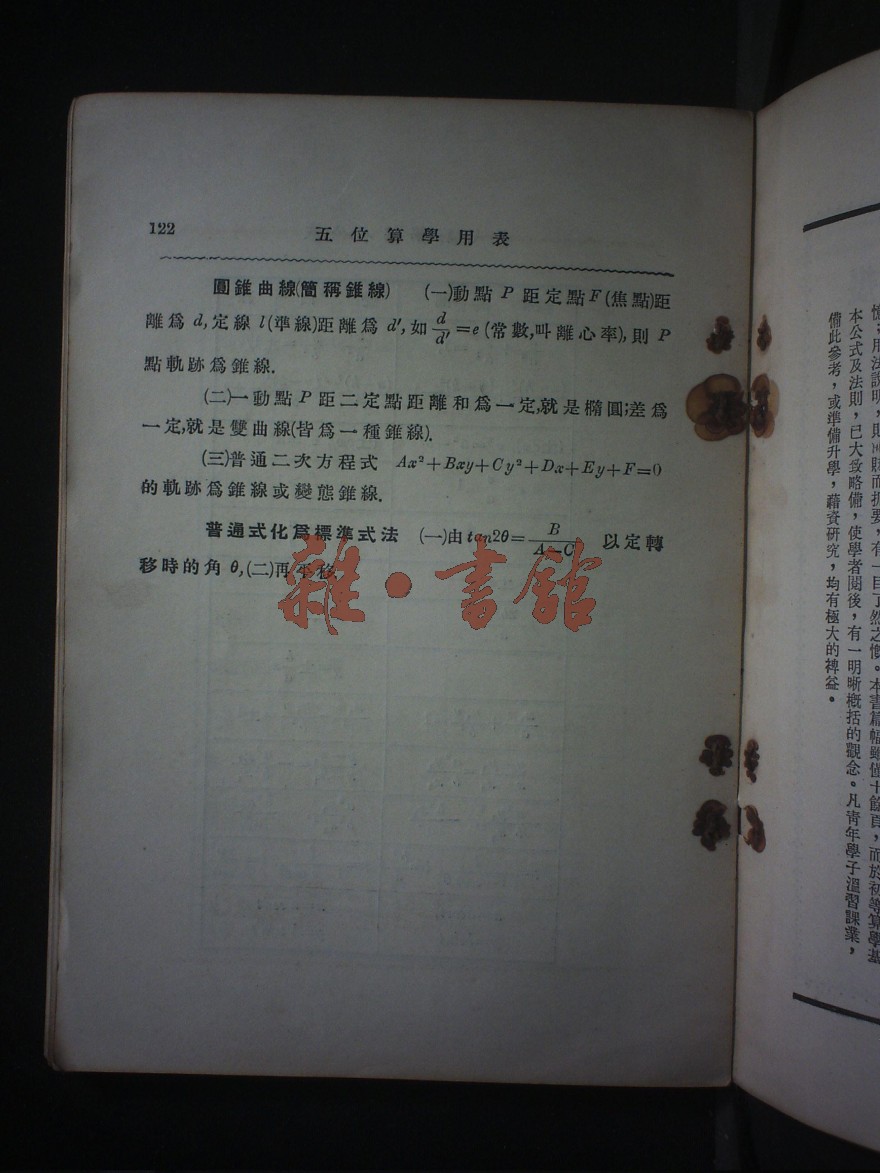 122
五位算學用表
圓錐曲線(簡稱錐線) (一)動點 P 距定點 F (焦點)距
離爲 d, 定線 l (準線)距離爲 d′, 如 d/d′ = e (常數,叫離心率), 則 P
點軌跡爲錐線.
(二)一動點 P 距二定點距離和爲一定,就是橢圓;差爲
一定,就是雙曲線(皆爲一種錐線).
(三)普通二次方程式 Ax²+Bxy+Cy²+Dx+Ey+F=0
的軌跡爲錐線或變態錐線.
普通式化爲標準式法 (一)由 tan2θ = B/(A−C) 以定轉
移時的角 θ, (二)再平移.
雜·書館
本公式及法則,已大致略備,使學者閱後,有一明晰概括的觀念。凡青年學子溫習課業,
備此參考,或準備升學,藉資研究,均有極大的裨益。